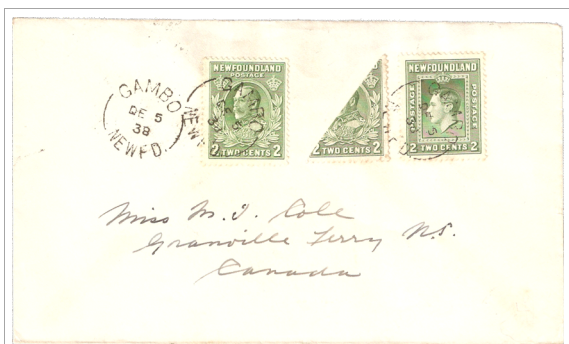 GAMBO
DE 5
38
NEWFD.
NEWFOUNDLAND
POSTAGE
2 TWO CENTS 2
GAMBO
2 TWO CENTS 2
NEWFOUNDLAND
POSTAGE POSTAGE
2 TWO CENTS 2
Miss M. J. Cole
Granville Ferry N.S.
Canada